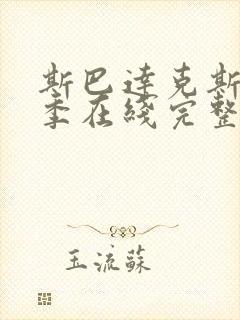 斯巴達克斯
季在綫完整
玉流蘇